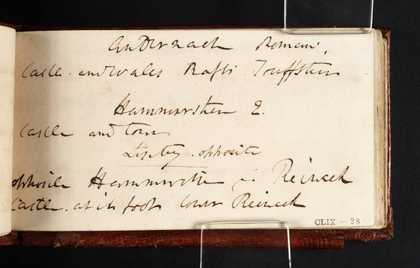 Andernach Roman,
Castle and Walls Rafts
Hammerstein 2.
Castle and town
opposite
opposite Hammerstein is Reineck
Castle at its foot lower Reineck
CLIX - 28